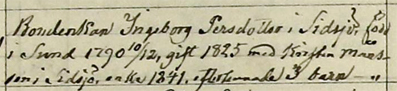 Bondenkan Ingeborg Persdotter i Sidsjö, född
i Sund 1790 10/12, gift 1825 med Kristen Måns-
son i Sidsjö, enka 1841, efterlemnade 3 barn "